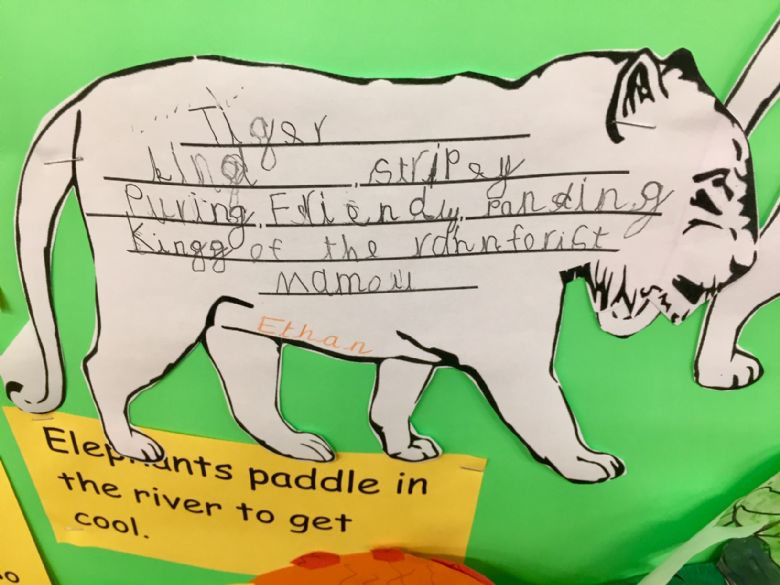 Tiger
kind, stripey
Puring, Friendy, Panding
Kingg of the rahnforist
mamoll
Ethan
Elephants paddle in
the river to get
cool.